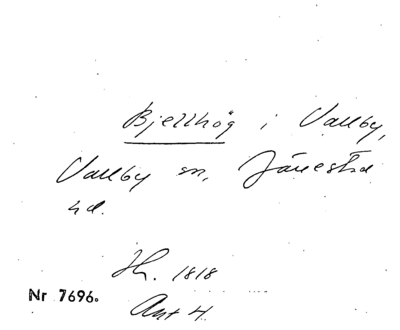 Bjellhög i Vallby,
Vallby sn, Järrestad
hd.
Hz. 1818
Nr 7696.
Ant 4.